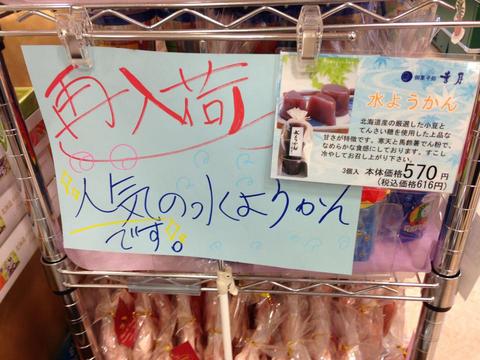 再入荷
人気の水ようかん
です。
御菓子処
水ようかん
北海道産の厳選した小豆と
てんさい糖を使用した上品な
甘さが特徴です。寒天と馬鈴薯でん粉で、
なめらかな食感にしております。すこし
冷やしてお召し上がり下さい。
3個入 本体価格570円
(税込価格616円)
水ようかん